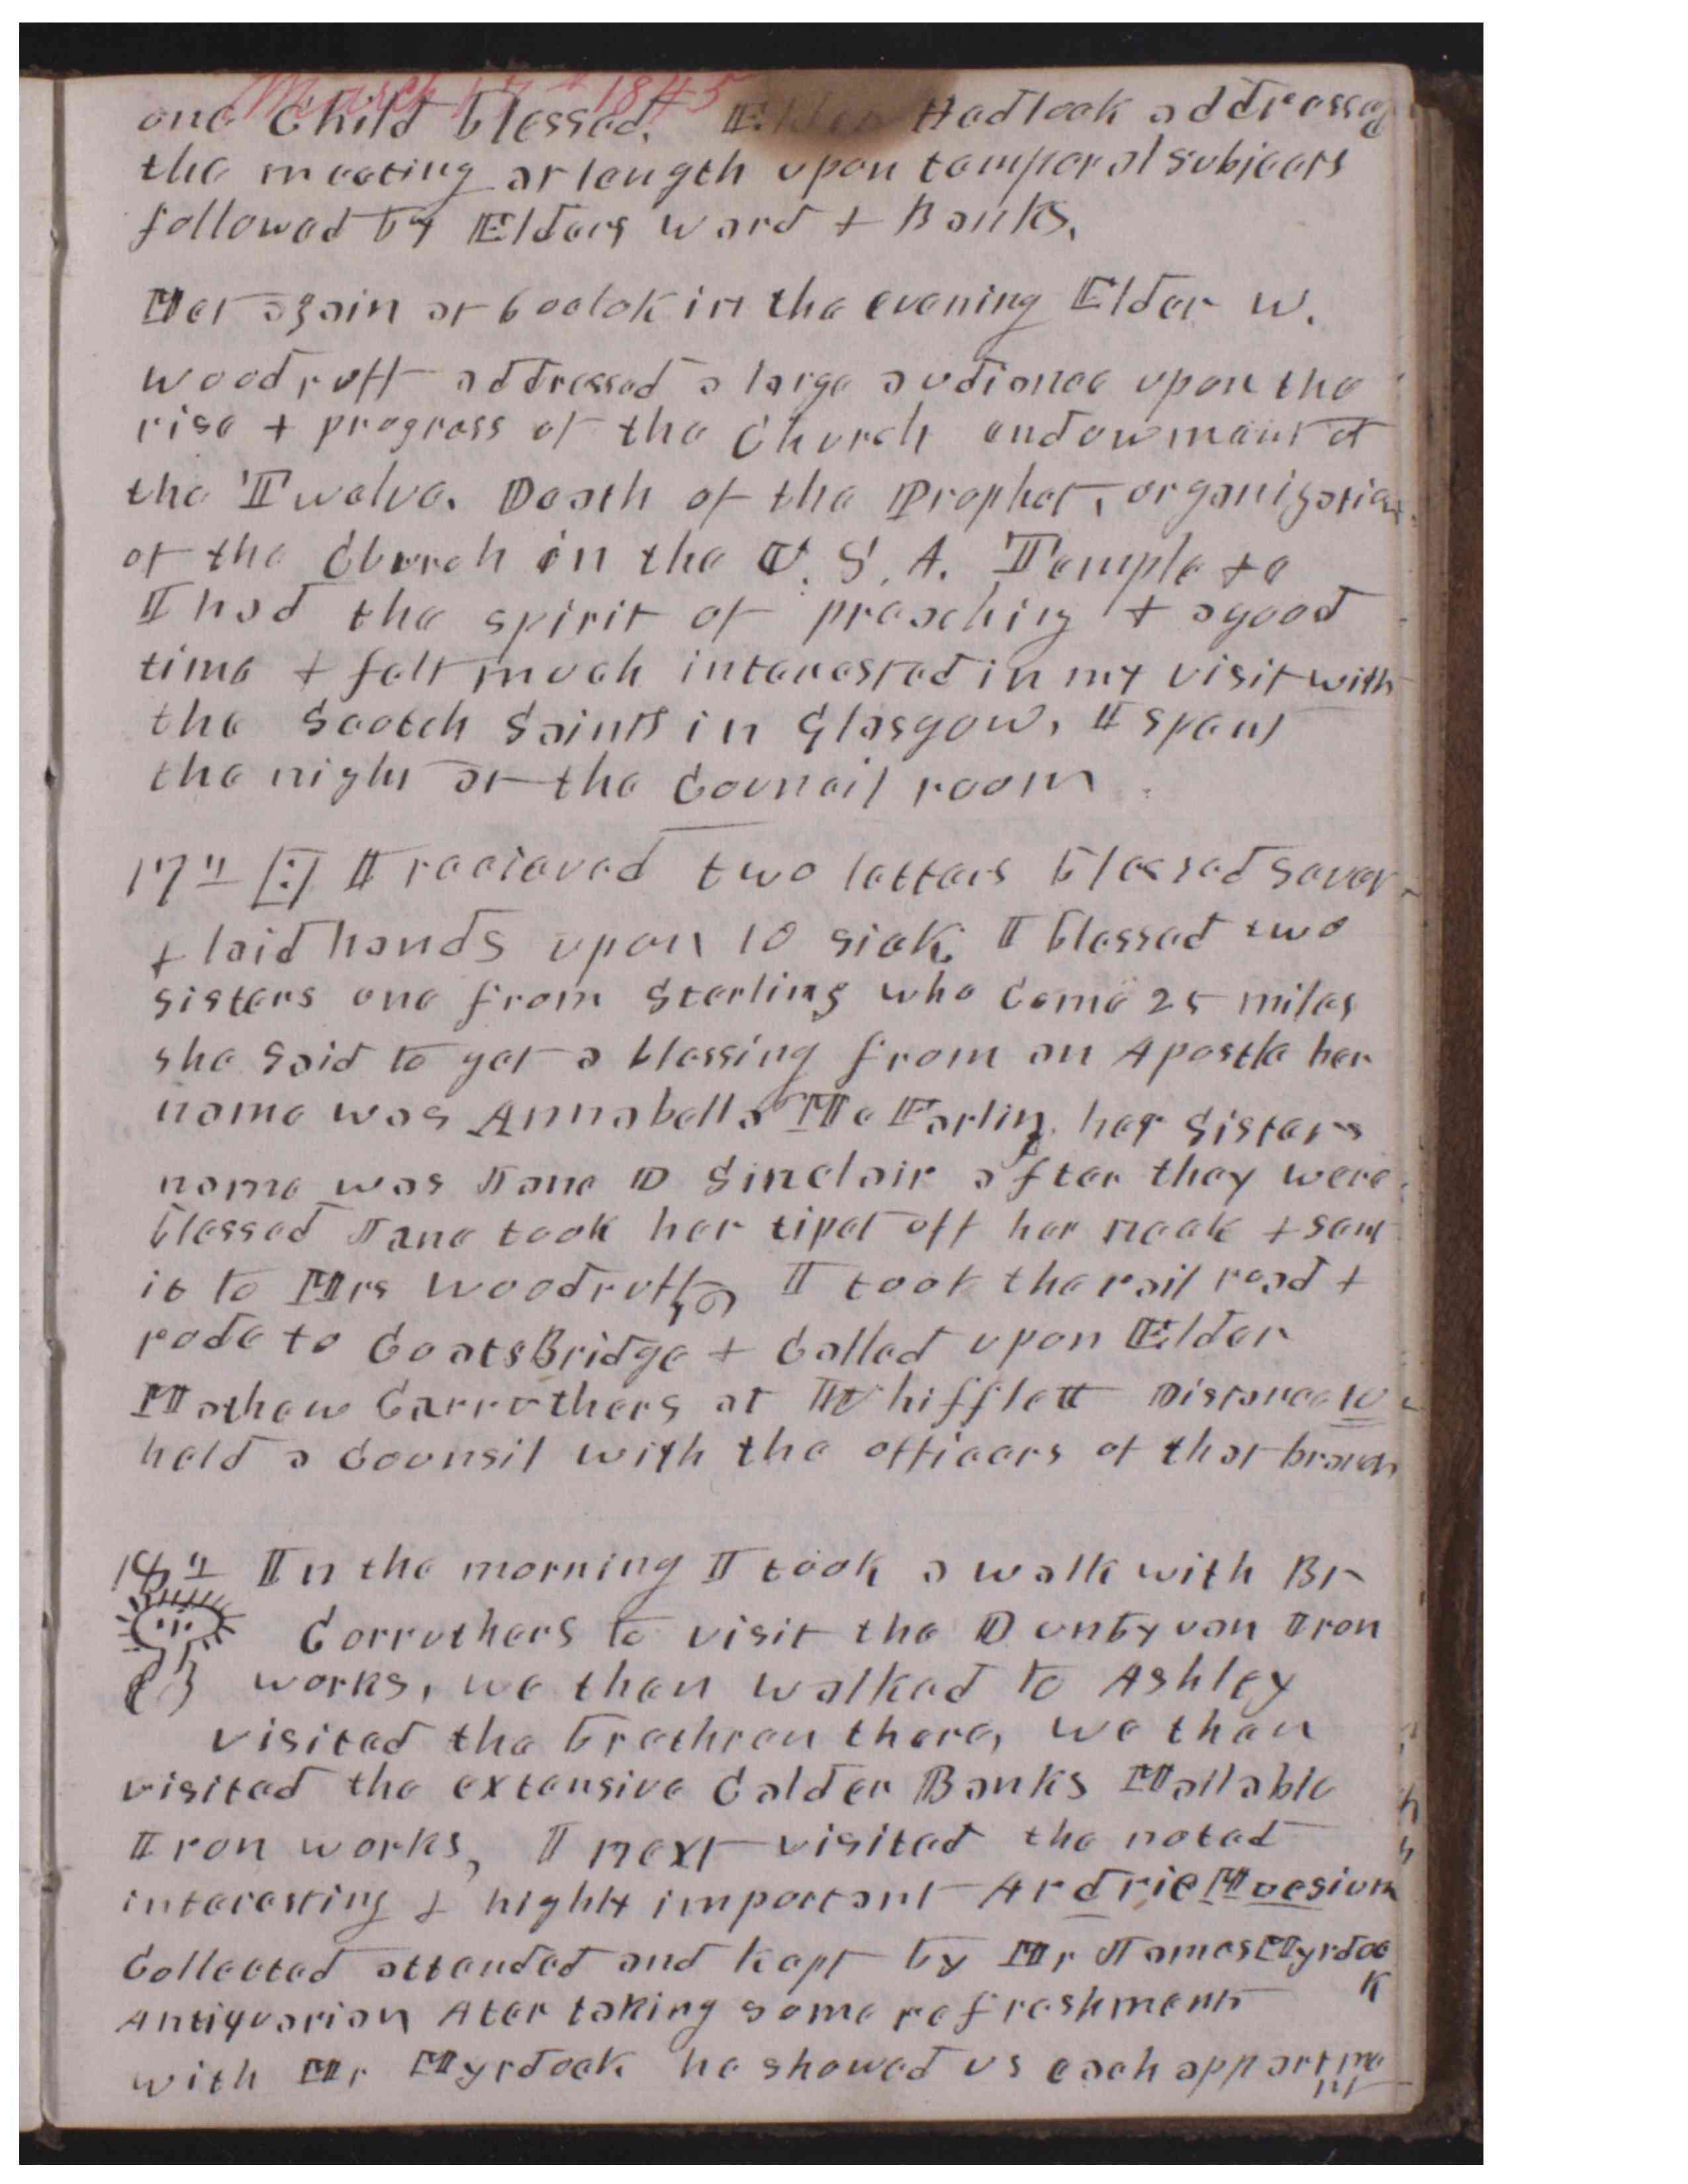 March 17th 1845
one Child blessed. Elder Hadlock addressed
the meeting at length upon temperal subjects
followed by Elders Ward + Banks.
Met again at 6 oclok in the evening Elder W.
Woodruff addressed a large audience upon the
rise + progress of the Church endowment of
the Twelve. Death of the Prophet, organization
of the Church in the U. S. A. Temple +c
I had the spirit of preaching + a good
time + felt much interested in my visit with
the Scotch Saints in Glasgow, I spent
the night at the Council room
17th I recieved two letters blessed sever
+ laid hands upon 10 sick. I blessed two
sisters one from Sterling who Come 25 miles
she said to get a blessing from an Apostle her
name was Annabella McFarlin her Sisters
name was Jane D Sinclair after they were
blessed Jane took her tipet off her neck + sent
it to Mrs Woodruff I took the rail road +
rode to CoatsBridge + Called upon Elder
Mathew Carruthers at Whifflett Distance 10
held a Counsil with the officers of that branch
18th In the morning I took a walk with Br
Carruthers to visit the Dunbyvan Iron
works, we then walked to Ashley
visited the brethren there, we then
visited the extensive Calder Banks Mallable
Iron works, I next visited the noted
interesting & highly important Ardrie Muesium
Collected attended and kept by Mr James Myrdock
Antiquarian Ater taking some refreshment
with Mr Myrdock he showed us each appartment